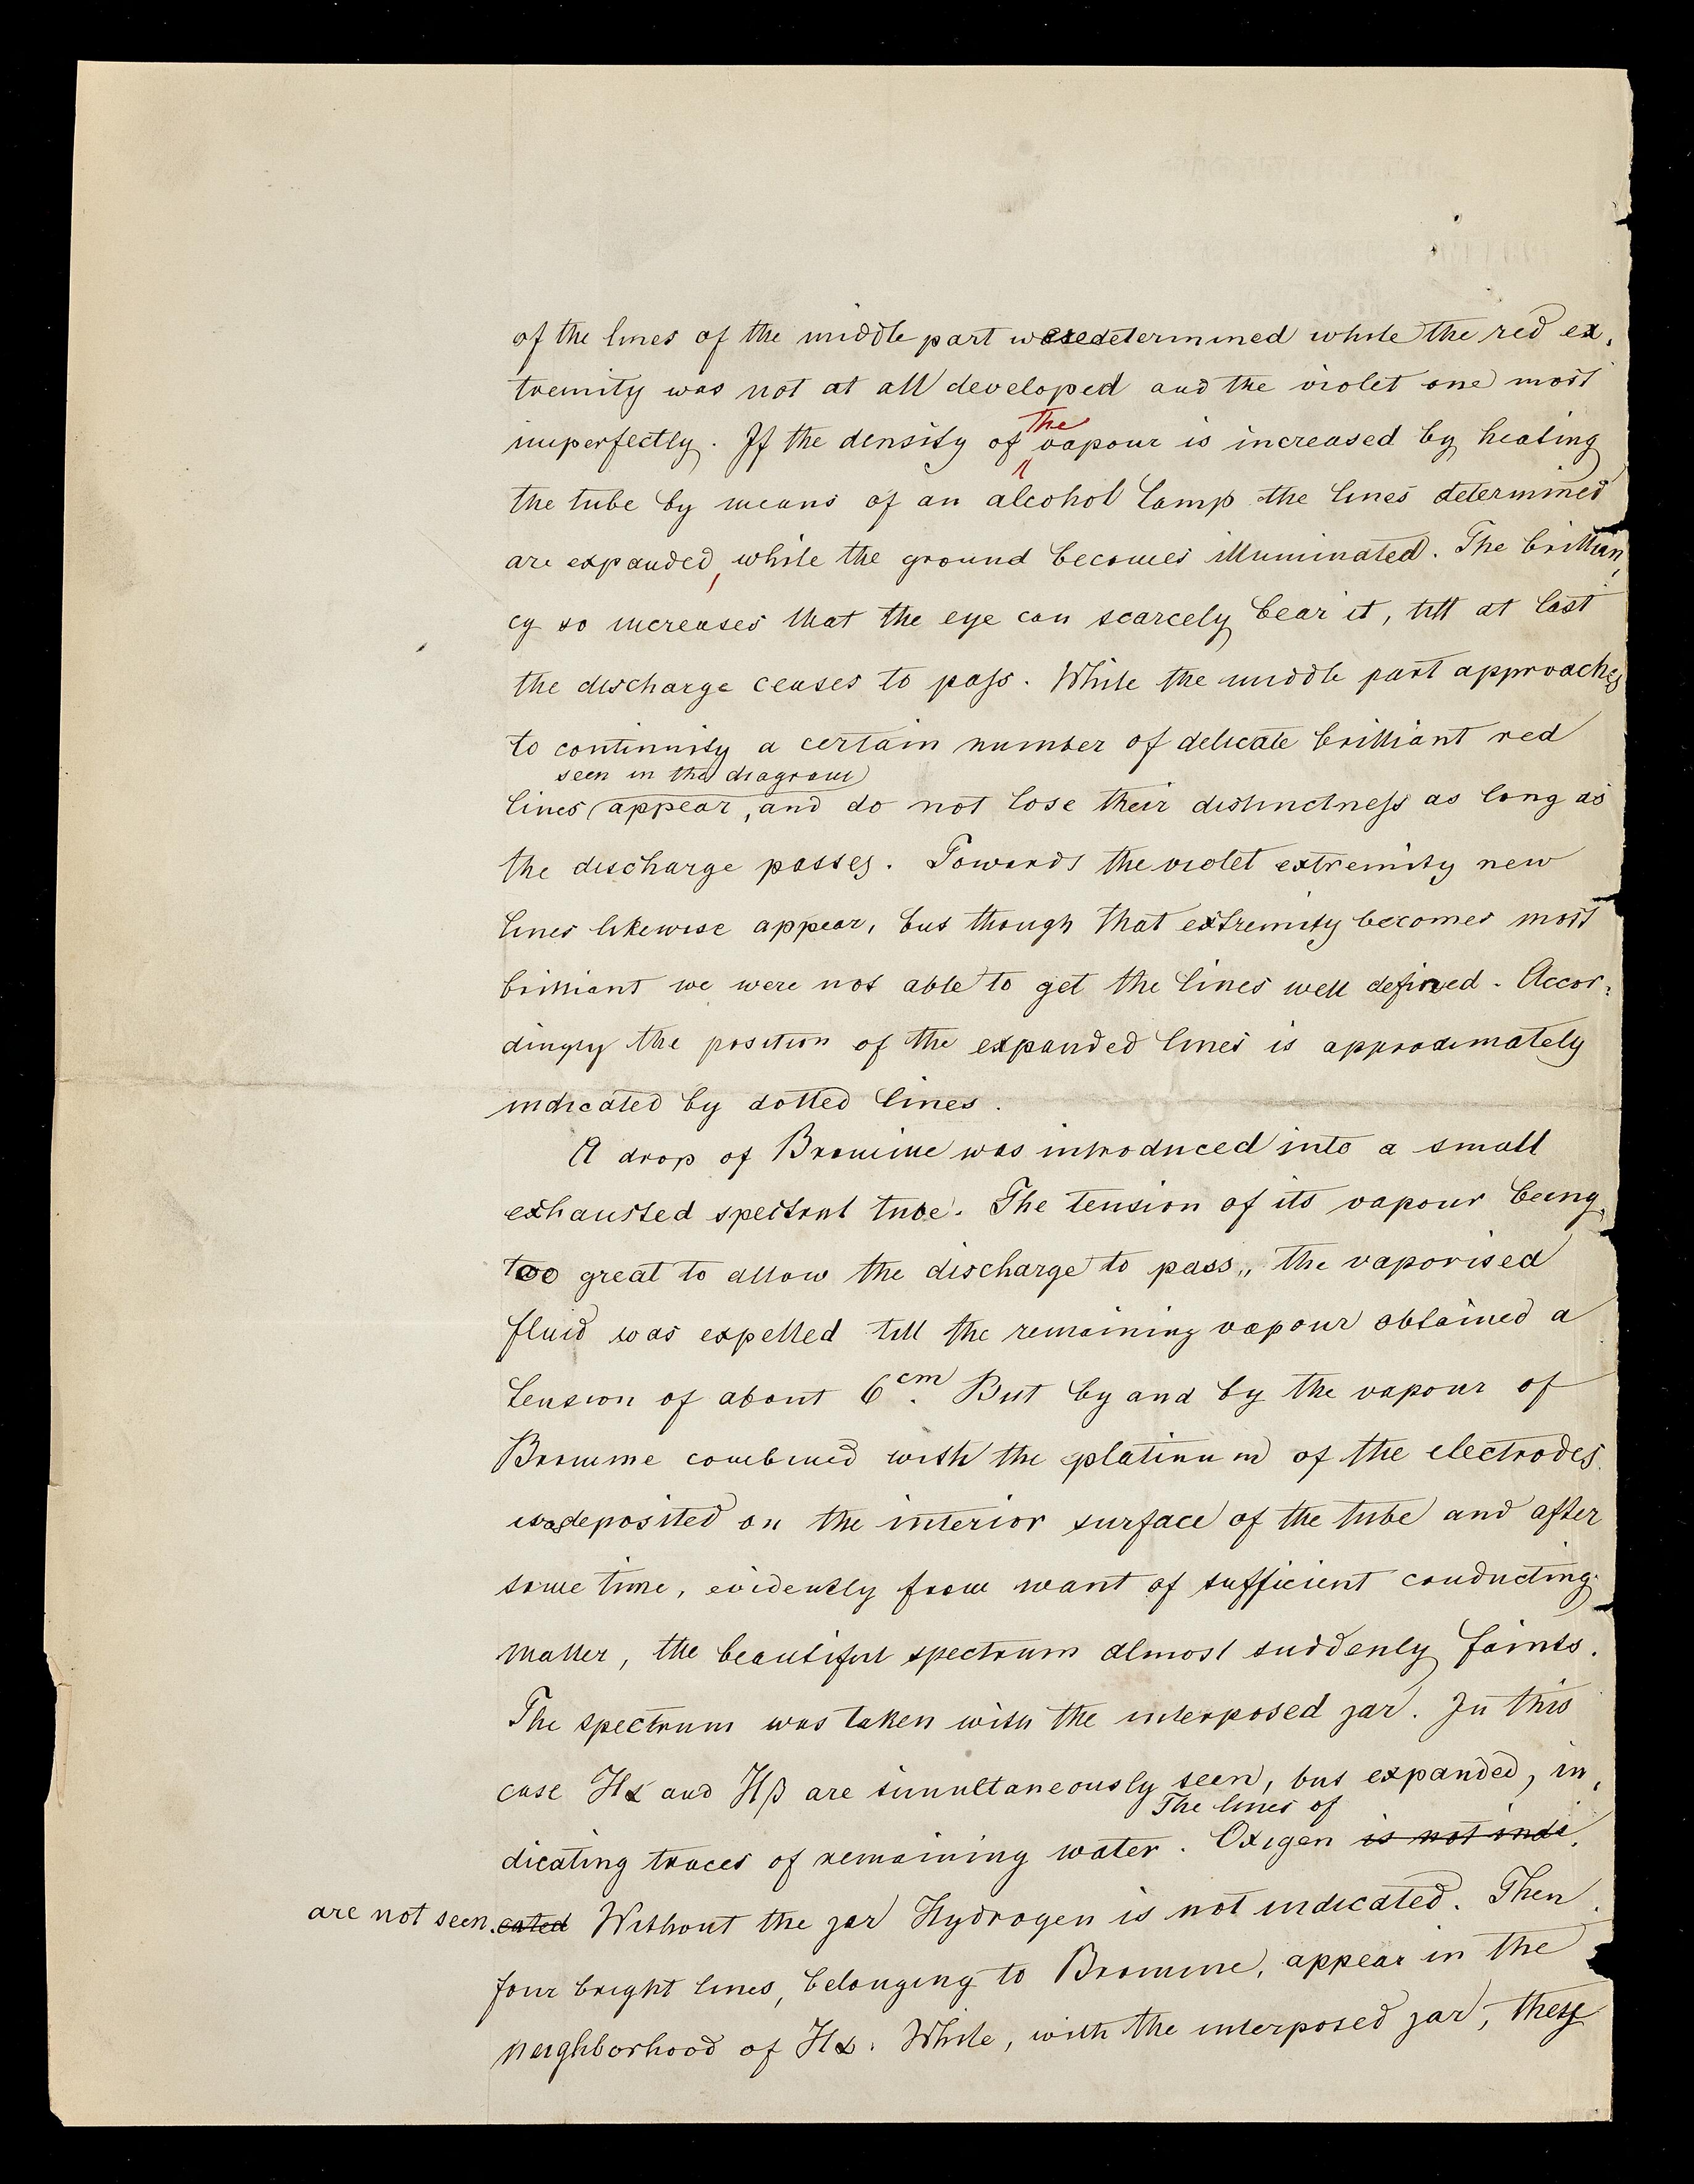 of the lines of the middle part were determined while the red ex,
tremity was not at all developed and the violet one most
the
imperfectly. If the density of vapour is increased by heating
the tube by means of an alcohol lamp the lines determined
are expanded, while the ground becomes illuminated. The brillian,
cy so increases that the eye can scarcely bear it, till at last
the discharge ceases to pass. While the middle part approaches
to continuity a certain number of delicate brilliant red
seen in the diagram
lines appear, and do not lose their distinctness as long as
the discharge passes. Towards the violet extremity new
lines likewise appear, but though that extremity becomes most
brilliant we were not able to get the lines well defined. Accor,
dingly the position of the expanded lines is approximately
indicated by dotted lines.
A drop of Bromine was introduced into a small
exhausted spectral tube. The tension of its vapour being
too great to allow the discharge to pass, the vaporised
fluid was expelled till the remaining vapour obtained a
tension of about 6cm. But by and by the vapour of
Bromine combined with the platinum of the electrodes
was deposited on the interior surface of the tube and after
some time, evidently from want of sufficient conducting
matter, the beautiful spectrum almost suddenly faints.
The spectrum was taken with the interposed jar. In this
case Hα and Hβ are simultaneously seen, but expanded, in,
The lines of
dicating traces of remaining water. Oxigen is not indi,
are not seen. cated Without the jar Hydrogen is not indicated. Then
four bright lines, belonging to Bromine, appear in the
neighborhood of Hα. While, with the interposed jar, these